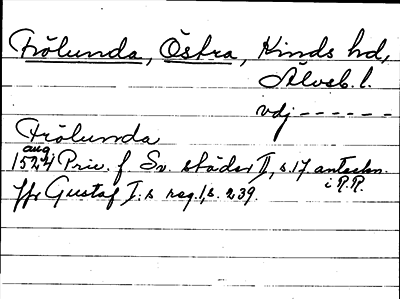 Frölunda, Östra, Kinds hd,
Älvsb. l.
vdj ------
Frölunda
aug
1524 Priv. f Sv. städer II, s. 17. anteckn.
i R.R.
jfr Gustaf I:s reg. 1, s. 239.